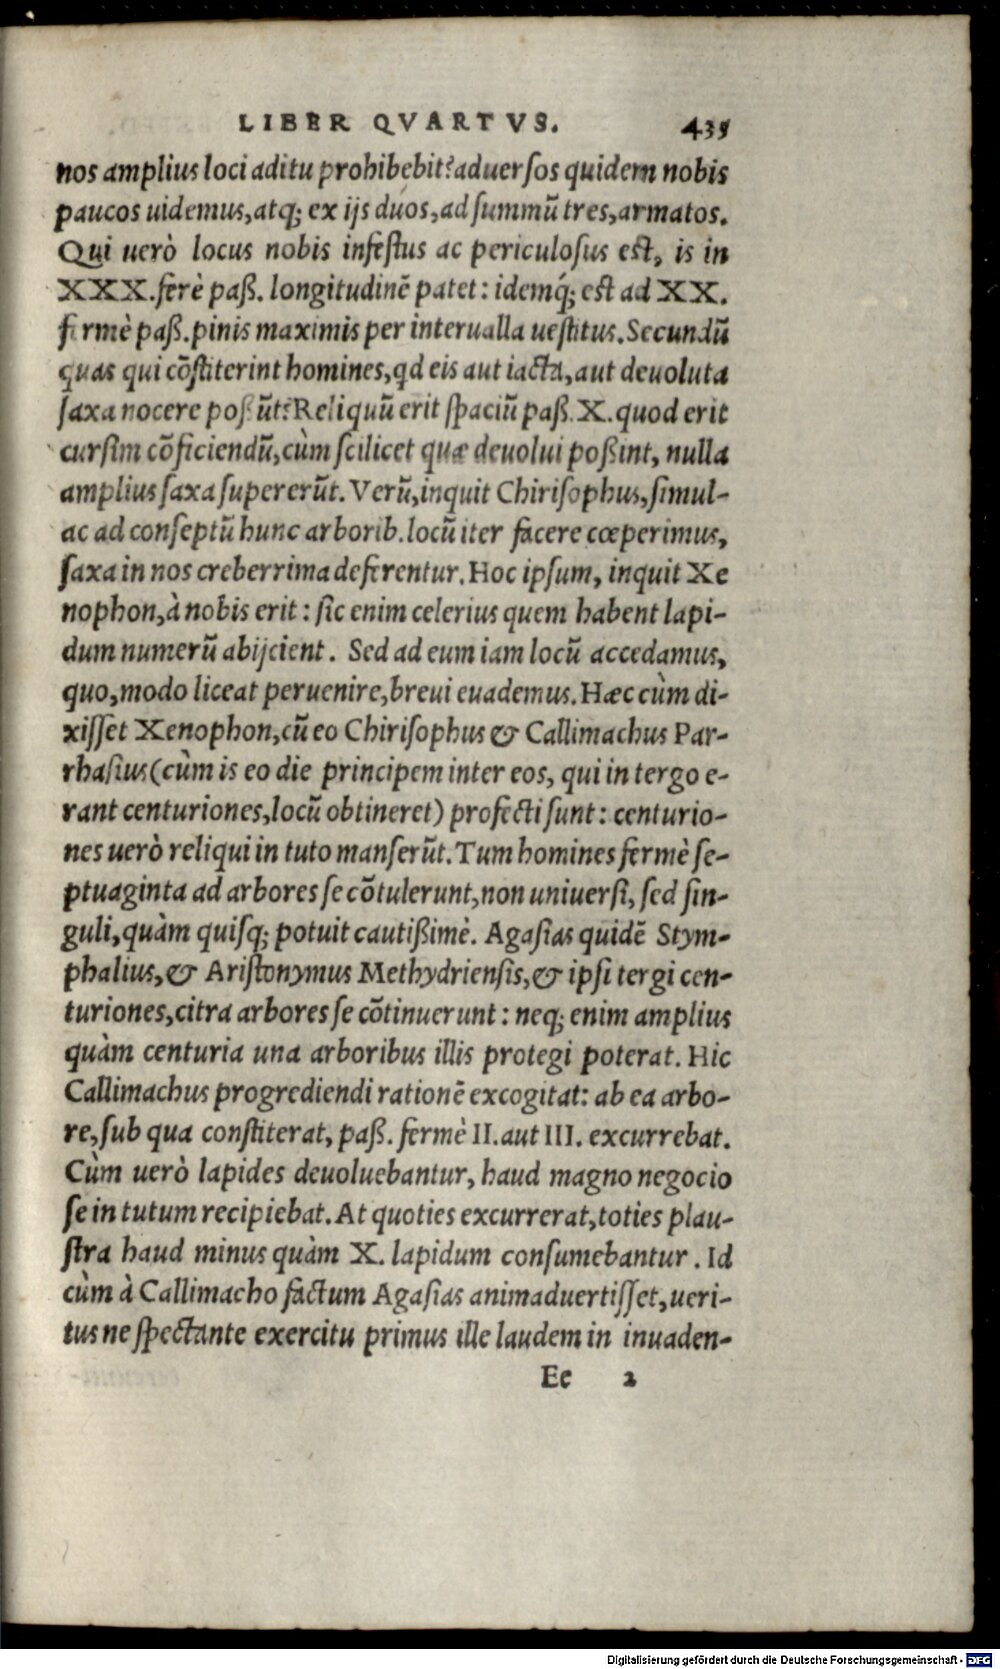 LIBER QVARTVS. 435
nos amplius loci aditu prohibebit? aduersos quidem nobis
paucos uidemus, atq; ex ijs duos, ad summū tres, armatos.
Qui uerò locus nobis infestus ac periculosus est, is in
XXX. ferè paß. longitudinē patet: idemq́; est ad XX.
fermè paß. pinis maximis per interualla uestitus. Secundū
quas qui cōstiterint homines, qd eis aut iacta, aut deuoluta
saxa nocere poßūt? Reliquū erit spaciū paß. X. quod erit
cursim cōficiendū, cùm scilicet quæ deuolui poßint, nulla
amplius saxa supererūt. Verū, inquit Chirisophus, simul-
ac ad conseptū hunc arborib. locū iter facere cœperimus,
saxa in nos creberrima deferentur. Hoc ipsum, inquit Xe
nophon, à nobis erit: sic enim celerius quem habent lapi-
dum numerū abijcient. Sed ad eum iam locū accedamus,
quo, modo liceat peruenire, breui euademus. Hæc cùm di-
xisset Xenophon, cū eo Chirisophus & Callimachus Par-
rhasius (cùm is eo die principem inter eos, qui in tergo e-
rant centuriones, locū obtineret) profecti sunt: centurio-
nes uerò reliqui in tuto manserūt. Tum homines fermè se-
ptuaginta ad arbores se cōtulerunt, non uniuersi, sed sin-
guli, quàm quisq; potuit cautißimè. Agasias quidē Stym-
phalius, & Aristonymus Methydriensis, & ipsi tergi cen-
turiones, citra arbores se cōtinuerunt: neq; enim amplius
quàm centuria una arboribus illis protegi poterat. Hic
Callimachus progrediendi rationē excogitat: ab ea arbo-
re, sub qua constiterat, paß. fermè II. aut III. excurrebat.
Cùm uerò lapides deuoluebantur, haud magno negocio
se in tutum recipiebat. At quoties excurrerat, toties plau-
stra haud minus quàm X. lapidum consumebantur. Id
cùm à Callimacho factum Agasias animaduertisset, ueri-
tus ne spectante exercitu primus ille laudem in inuaden-
Ee 2
Digitalisierung gefördert durch die Deutsche Forschungsgemeinschaft - DFG